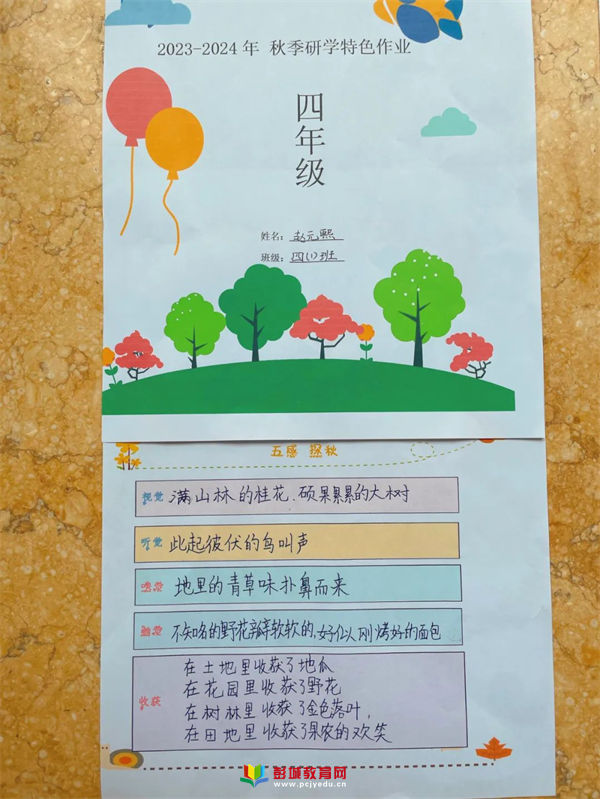 2023-2024年 秋季研学特色作业
四年级
姓名：赵元熙
班级：四(1)班
五感 探秋
视觉 满山林的桂花、硕果累累的大树
听觉 此起彼伏的鸟叫声
嗅觉 地里的青草味扑鼻而来
触觉 不知名的野花瓣软软的,好似刚烤好的面包
在土地里收获了地瓜
在花园里收获了野花
收获 在树林里收获了金色落叶，
在田地里收获了果农的欢笑
彭城教育网
www.pcjyedu.cn